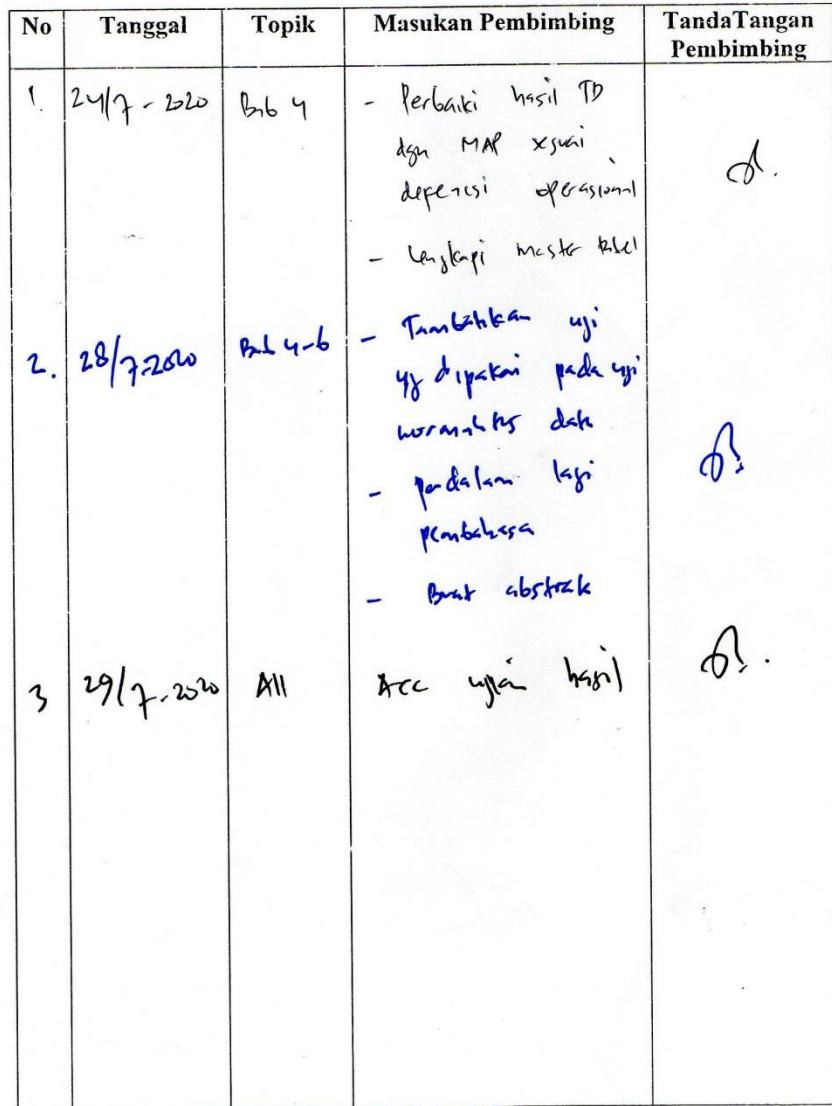 No Tanggal Topik Masukan Pembimbing TandaTangan
Pembimbing
1. 24/7-2020 Bab 4 - Perbaiki hasil TD
dgn MAP sesuai
defenisi operasional
- Lengkapi master tabel
2. 28/7-2020 Bab 4-6 - Tambahkan uji
yg dipakai pada uji
normalitas data
- perdalam lagi
pembahasa
- Buat abstrak
3 29/7-2020 All Acc ujian hasil